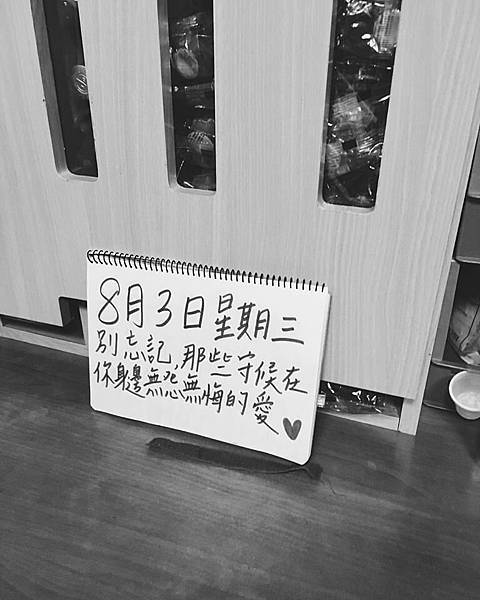 8月3日星期三
別忘記,那些守候在
你身邊無怨無悔的愛